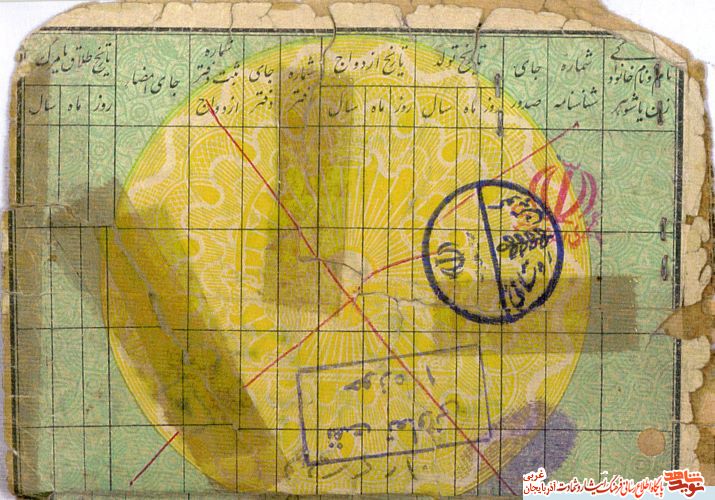 نام و نام خانوادگی زن یا شوهر
شماره شناسنامه
جای صدور
تاریخ تولد
روز ماه سال
تاریخ ازدواج
روز ماه سال
شماره دفتر
جای دفتر
شماره ثبت دفتر ازدواج
جای امضاء
تاریخ طلاق یا مرگ
روز ماه سال
حوزه ۱
نوید شاهد
پایگاه اطلاع رسانی فرهنگ ایثار و شهادت آذربایجان غربی